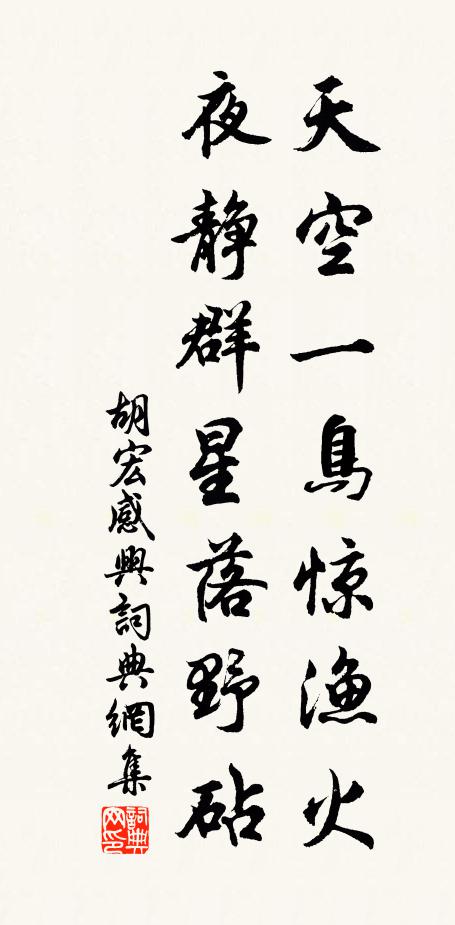 天空一鳥惊渔火
夜静群星落野砧
胡宏感興詞典網集
詞典网印